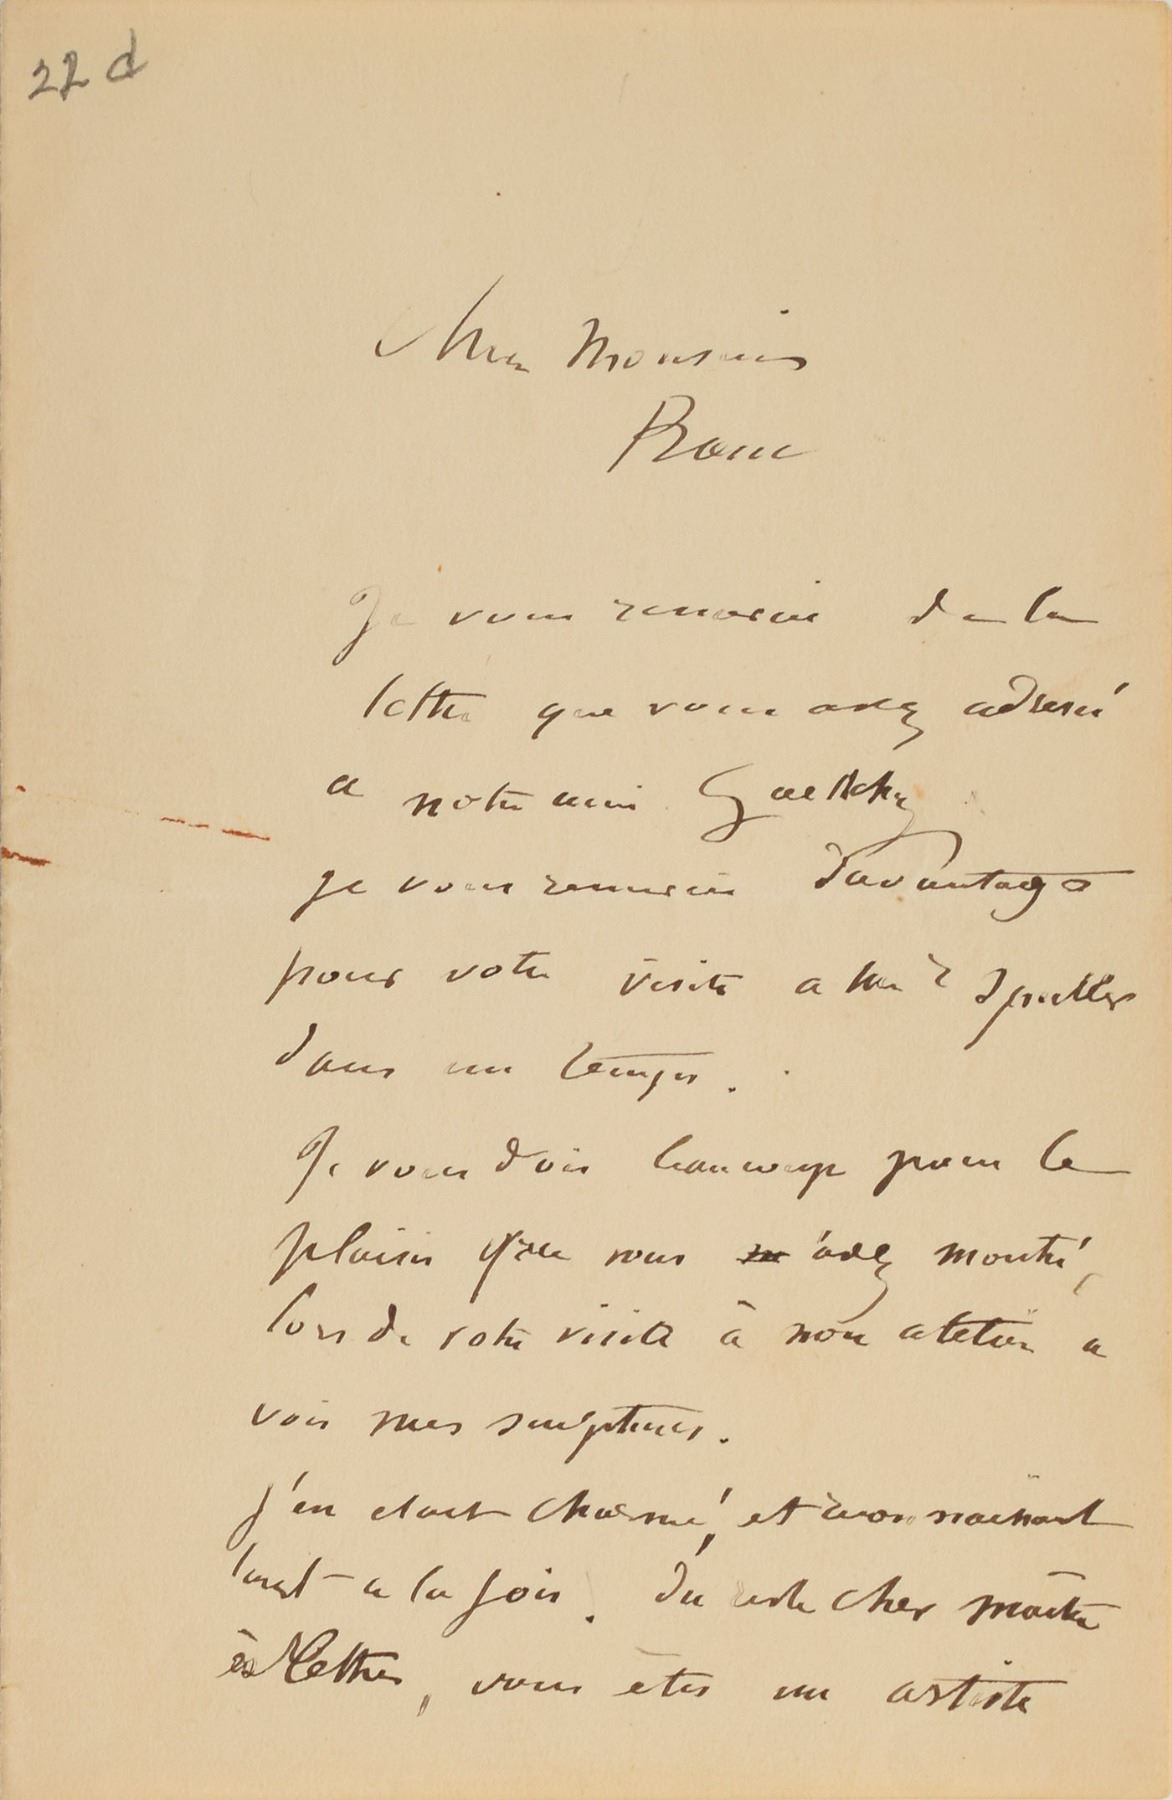 22 d
Cher Monsieur
Ranc
Je vous remercie de la
lettre que vous avez adressé
a notre ami
je vous remercie davantage
pour votre visite a Mr Spuller
dans un temps.
Je vous dois beaucoup pour le
plaisir que vous avez montré,
lors de votre visite à mon atelier a
voir mes sculptures.
j'en etait charmé, et reconnaissant
tout a la fois. Du reste cher maitre
ès lettres, vous êtes un artiste